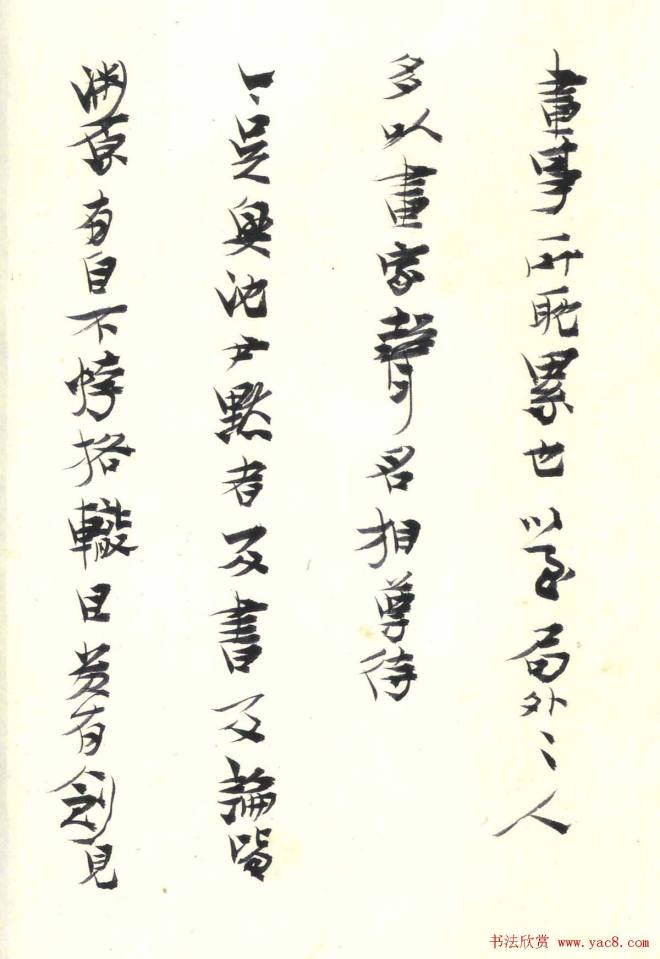 畫事所耽累也以至局外之人
多以畫家聲名相尊待
足與沈尹默者及書及論皆
淵源有自不悖格轍且有創見
书法欣赏 www.yac8.com